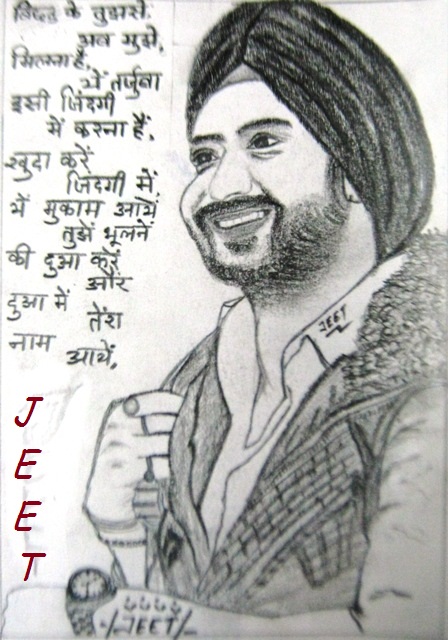 के
अब मुझे,
मिलना है,
ये तर्जुबा
इसी जिंदगी
में करना हैं,
खुदा करें
जिंदगी में,
ये मुकाम आयें
तुझें भूलनें
की दुआ करें
और
दुआ में
तेरा
नाम
आयें,
JEET
J
E
E
T
JEET